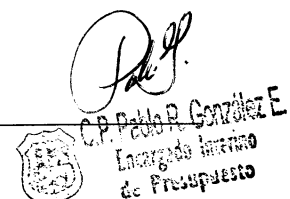 C.P. Pablo R. González E.
Encargado Interino
de Presupuesto